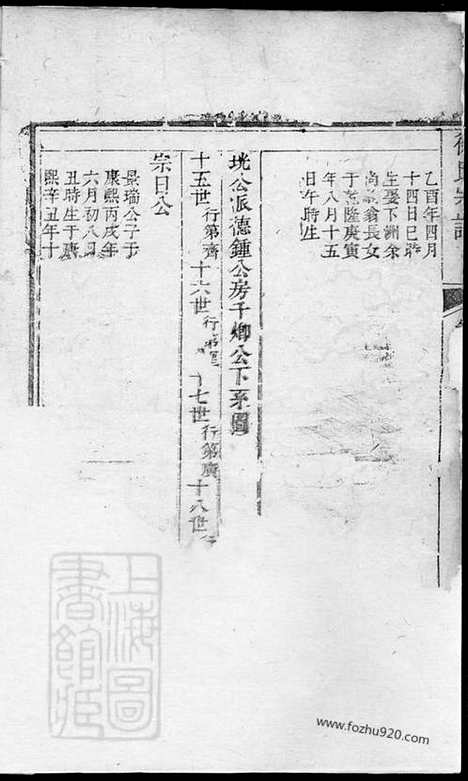 氏宗譜
乙酉年四月
十四日巳時
生娶下洲余
尚翁長女
于隆庚寅
年八月十五
日午時生
珖公派德鍾公房千卿公下系圖
十五世 行第齊 十六世 行第 十七世 行第廣 十八世 行
崇日公
景瑞公子于
康熙丙戌年
六月初八
丑時生于康
熙辛丑年十
上海圖
書館藏
www.fozhu920.com